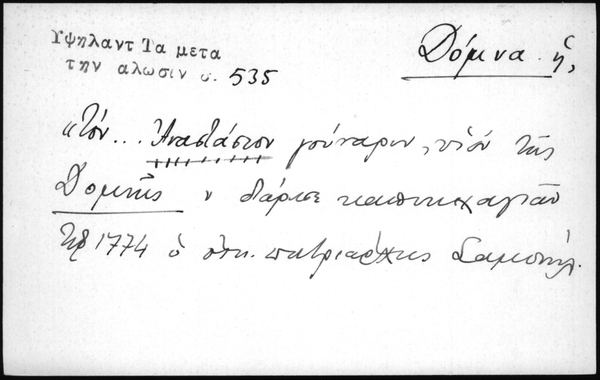 Υψηλαντ Τα μετα
την αλωσιν σ. 535
Δόμνα ἡ,
«Τὸν... Ἀναστάσιον γούναριν, υἱὸν τῆς
Δομνῆς
1774 ὁ πατριάρχης Σαμουήλ.